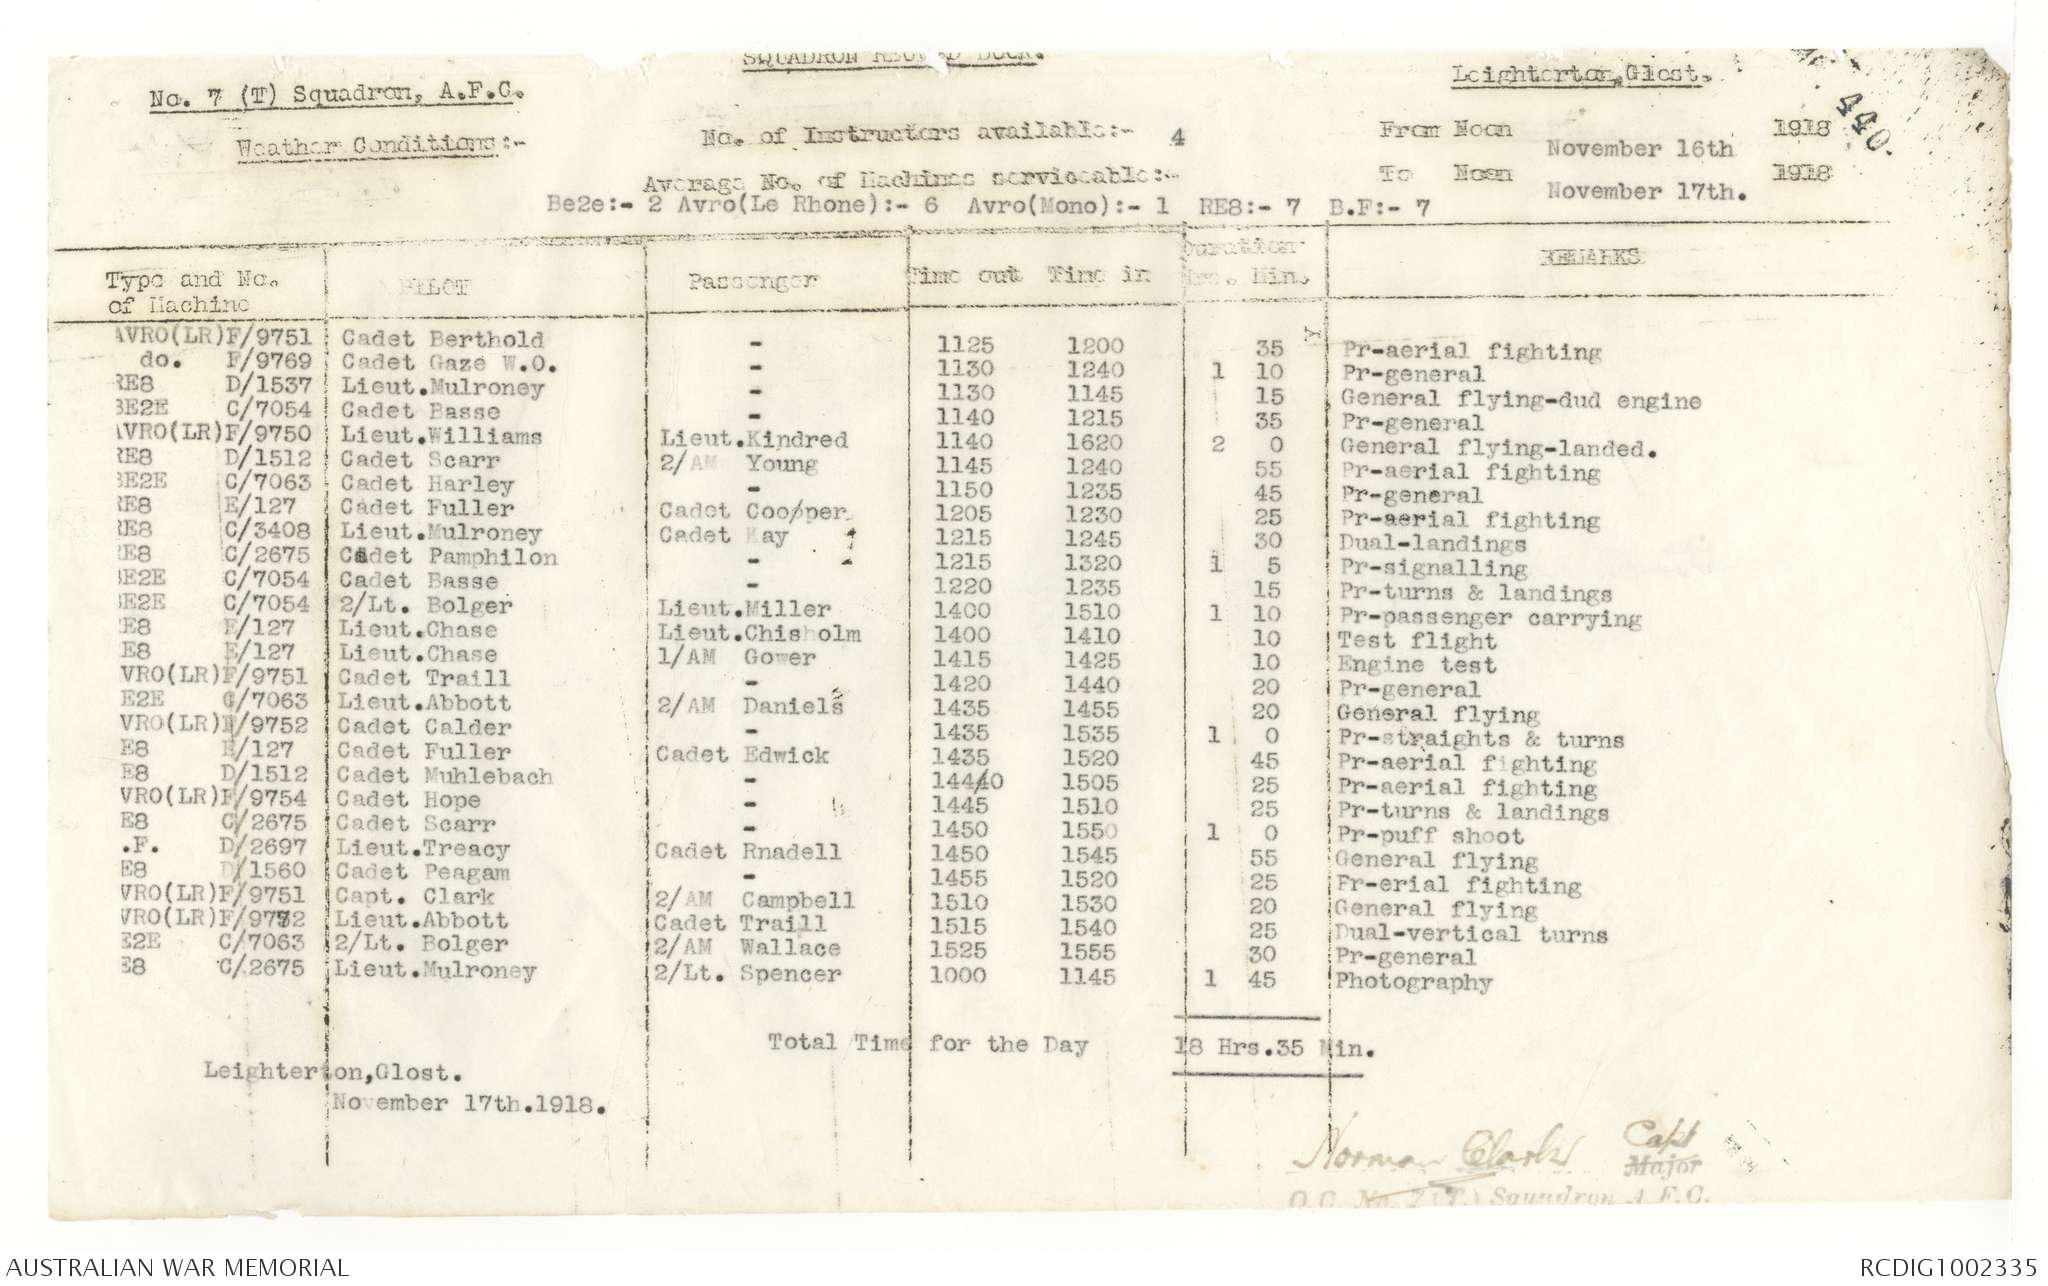 SQUADRON RECORD BOOK.
No. 7 (T) Squadron, A.F.C.
Leighterton,Glost.
440.
Weather Conditions:-
No. of Instructors available:- 4
From Noon November 16th 1918
Average No. of Machines serviceable:-
To Noon November 17th. 1918
Be2e:- 2 Avro(Le Rhone):- 6 Avro(Mono):- 1 RE8:- 7 B.F:- 7
Type and No. of Machine PILOT Passenger Time out Time in Duration Hrs. Min. REMARKS
AVRO(LR)F/9751 Cadet Berthold - 1125 1200 35 Pr-aerial fighting
do. F/9769 Cadet Gaze W.O. - 1130 1240 1 10 Pr-general
RE8 D/1537 Lieut.Mulroney - 1130 1145 15 General flying-dud engine
BE2E C/7054 Cadet Basse - 1140 1215 35 Pr-general
AVRO(LR)F/9750 Lieut.Williams Lieut.Kindred 1140 1620 2 0 General flying-landed.
RE8 D/1512 Cadet Scarr 2/AM Young 1145 1240 55 Pr-aerial fighting
BE2E C/7063 Cadet Harley - 1150 1235 45 Pr-general
RE8 E/127 Cadet Fuller Cadet Coo/per 1205 1230 25 Pr-aerial fighting
RE8 C/3408 Lieut.Mulroney Cadet Kay 1215 1245 30 Dual-landings
RE8 C/2675 Cadet Pamphilon - 1215 1320 1 5 Pr-signalling
BE2E C/7054 Cadet Basse - 1220 1235 15 Pr-turns & landings
BE2E C/7054 2/Lt. Bolger Lieut.Miller 1400 1510 1 10 Pr-passenger carrying
RE8 E/127 Lieut.Chase Lieut.Chisholm 1400 1410 10 Test flight
E8 E/127 Lieut.Chase 1/AM Gower 1415 1425 10 Engine test
VRO(LR)F/9751 Cadet Traill - 1420 1440 20 Pr-general
E2E C/7063 Lieut.Abbott 2/AM Daniels 1435 1455 20 General flying
VRO(LR)F/9752 Cadet Calder - 1435 1535 1 0 Pr-straights & turns
E8 E/127 Cadet Fuller Cadet Edwick 1435 1520 45 Pr-aerial fighting
E8 D/1512 Cadet Muhlebach - 144/40 1505 25 Pr-aerial fighting
VRO(LR)F/9754 Cadet Hope - 1445 1510 25 Pr-turns & landings
E8 C/2675 Cadet Scarr - 1450 1550 1 0 Pr-puff shoot
.F. D/2697 Lieut.Treacy Cadet Rnadell 1450 1545 55 General flying
E8 D/1560 Cadet Peagam - 1455 1520 25 Pr-erial fighting
VRO(LR)F/9751 Capt. Clark 2/AM Campbell 1510 1530 20 General flying
VRO(LR)F/9772 Lieut.Abbott Cadet Traill 1515 1540 25 Dual-vertical turns
E2E C/7063 2/Lt. Bolger 2/AM Wallace 1525 1555 30 Pr-general
E8 C/2675 Lieut.Mulroney 2/Lt. Spencer 1000 1145 1 45 Photography
Total Time for the Day 18 Hrs.35 Min.
Leighterton,Glost.
November 17th.1918.
Norman Clark Capt
Major
O.C. No. 7 (T.) Squadron A.F.C.
AUSTRALIAN WAR MEMORIAL RCDIG1002335